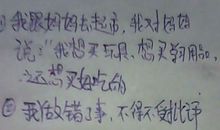 我跟妈妈去超市,我对妈妈
说:"我想买玩具、想买学习用品,
还想买好吃的
② 我做错了事,不得不受批评